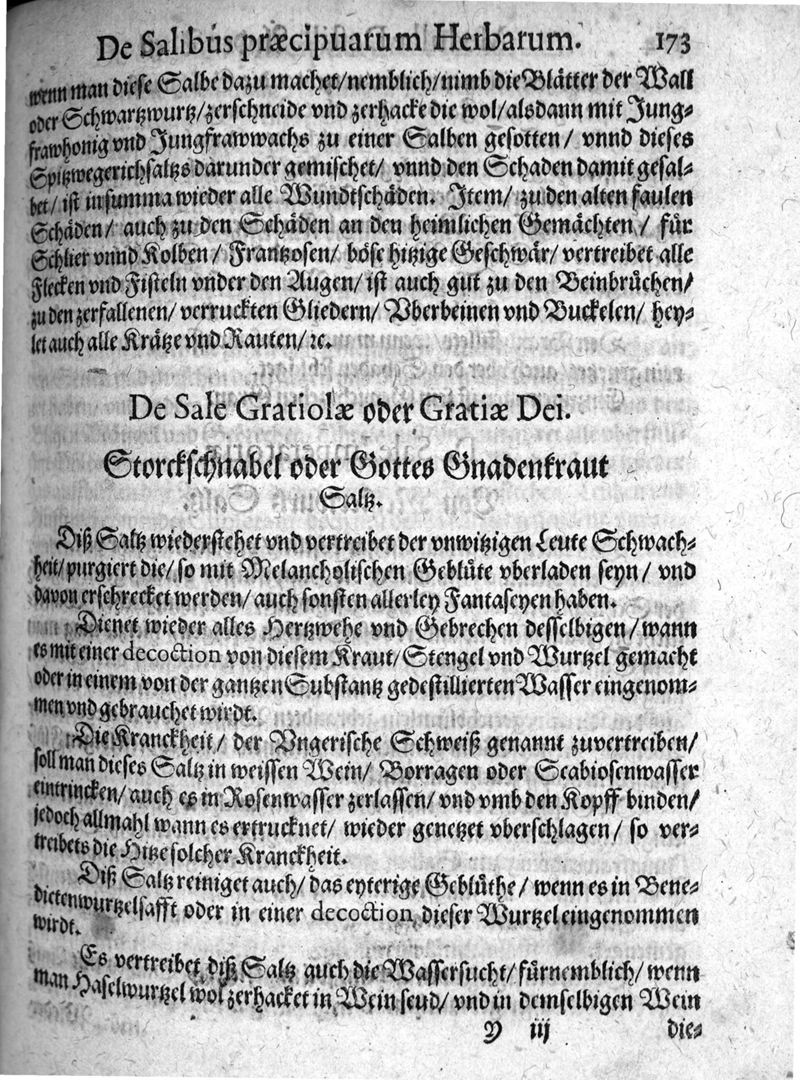 De Salibus præcipuarum Herbarum. 173
wenn man diese Salbe dazu machet/nemblich/nimb die Blätter der Wall
oder Schwartzwurtz/zerschneide vnd zerhacke die wol/alsdann mit Jung-
frawhonig vnd Jungfrawwachs zu einer Salben gesotten/ vnnd dieses
Spitzwegerichsaltzs darunder gemischet/ vnnd den Schaden damit gesal-
bet/ ist in summa wieder alle Wundtschäden. Jtem/ zu den alten faulen
Schäden/ auch zu den Schäden an den heimlichen Gemächten/ für
Schlier vnnd Kolben/ Frantzosen/ böse hitzige Geschwär/ vertreibet alle
Flecken vnd Fisteln vnder den Augen/ ist auch gut zu den Beinbrüchen/
zu den zerfallenen/ verruckten Gliedern/ Vberbeinen vnd Buckelen/ hey-
let auch alle Krätze vnd Rauten/ ꝛc.
De Sale Gratiolæ oder Gratiæ Dei.
Storckschnabel oder Gottes Gnadenkraut
Saltz.
Diß Saltz wiederstehet vnd vertreibet der vnwitzigen Leute Schwach-
heit/purgiert die/ so mit Melancholischen Geblüte vberladen seyn/ vnd
davon erschrecket werden/ auch sonsten allerley Fantaseyen haben.
Dienet wieder alles Hertzwehe vnd Gebrechen desselbigen/ wann
es mit einer decoction von diesem Kraut/ Stengel vnd Wurtzel gemacht
oder in einem von der gantzen Substantz gedestillierten Wasser eingenom-
men vnd gebrauchet wirdt.
Die Kranckheit/ der Vngerische Schweiß genannt zuvertreiben/
soll man dieses Saltz in weissen Wein/ Borragen oder Scabiosenwasser
eintrincken/ auch es in Rosenwasser zerlassen/ vnd vmb den Kopff binden/
jedoch allmahl wann es ertrucknet/ wieder genetzet vberschlagen/ so ver-
treibets die Hitze solcher Kranckheit.
Diß Saltz reiniget auch/ das eyterige Geblüthe/ wenn es in Bene-
dictenwurtzelsafft oder in einer decoction dieser Wurtzel eingenommen
wirdt.
Es vertreibet diß Saltz auch die Wassersucht/ fürnemblich/ wenn
man Haselwurtzel wol zerhacket in Wein seud/ vnd in demselbigen Wein
Y iij die-